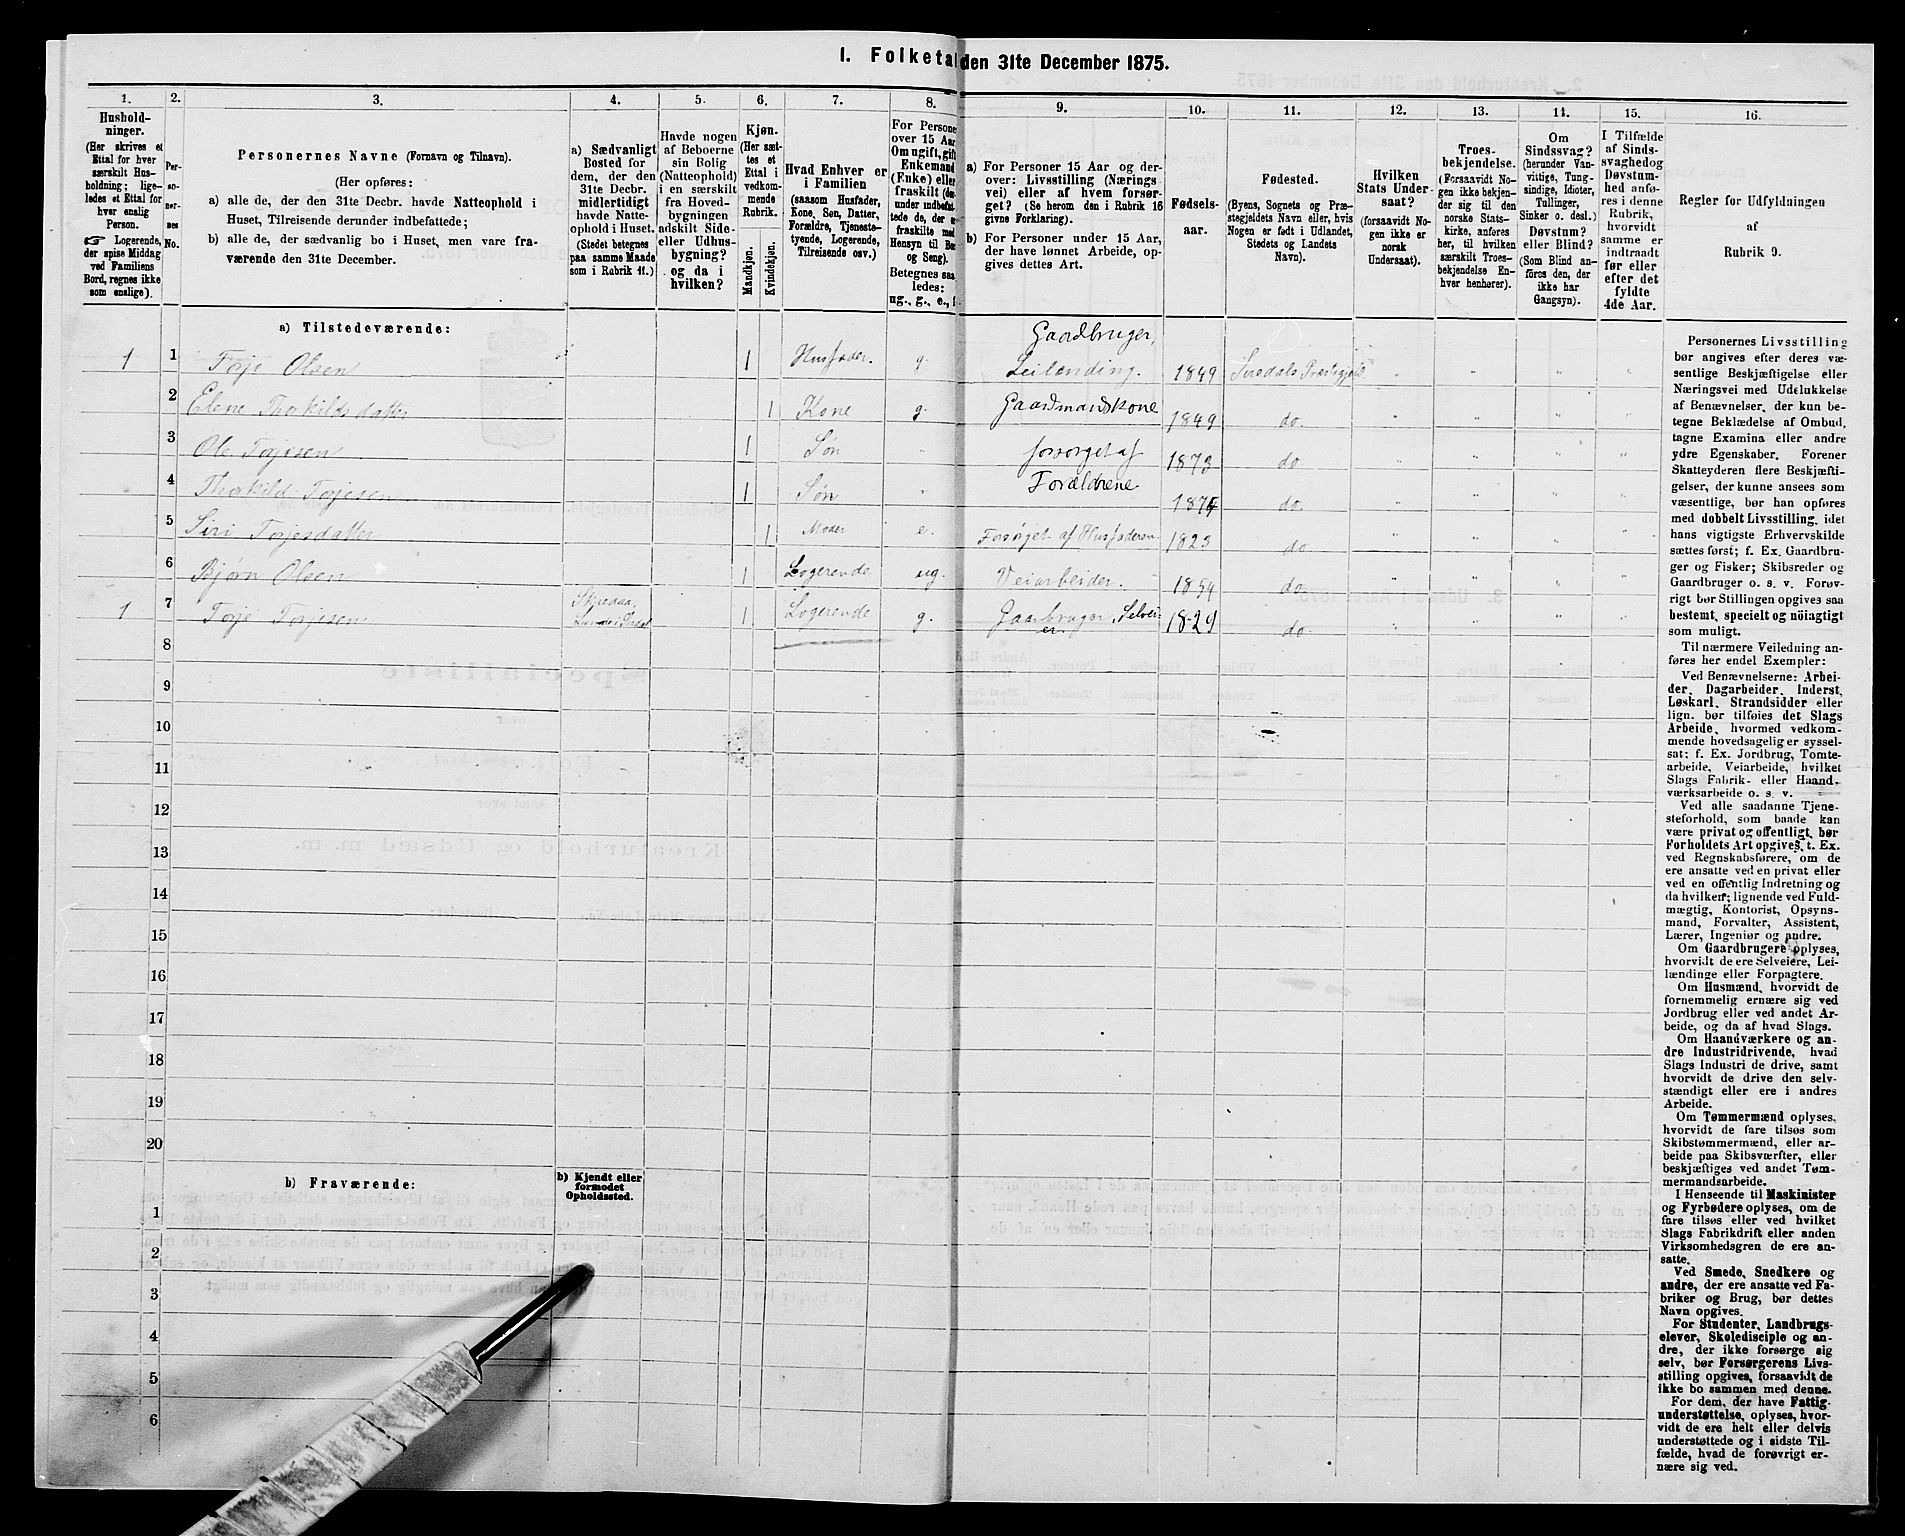 I. Folketal den 31te December 1875.
1.
2.
3.
4.
5.
6.
7.
8.
9.
10.
11.
12.
13.
14.
15.
16.
Hushold-
ninger.
(Her skrives et
Ettal for hver
særskilt Hus-
holdning; lige-
ledes et Ettal for
hver enslig
Person.
☞ Logerende,
der spise Middag
ved Familiens
Bord, regnes ikke
som enslige).
Per-
so-
ner-
nes
No.
Personernes Navne (Fornavn og Tilnavn).
(Her opføres:
a) alle de, der den 31te Decbr. havde Natteophold i
Huset, Tilreisende derunder indbefattede;
b) alle de, der sædvanlig bo i Huset, men vare fra-
værende den 31te December.
a) Sædvanligt
Bosted for
dem, der den
31te Decbr.
midlertidigt
havde Natte-
ophold i Huset.
(Stedet betegnes
paa samme Maade
som i Rubrik 11.)
Havde nogen
af Beboerne
sin Bolig
(Natteophold)
i en særskilt
fra Hoved-
bygningen
adskilt Side-
eller Udhus-
bygning?
og da i
hvilken?
Kjøn.
(Her sæt-
tes et
Ettal i
vedkom-
mende
Rubrik.
Mandkjøn.
Kvindekjøn.
Hvad Enhver er
i Familien
(saasom Husfader,
Kone, Søn, Datter,
Forældre, Tjeneste-
tyende, Logerende,
Tilreisende osv.)
For Persone
over 15 Aar
Om ugift, gift
Enkemand
(Enke) eller
fraskilt (der-
under indbefat-
tede de, der er
fraskilte med
Hensyn til Bo
og Seng).
Betegnes saa
ledes:
ug., g., e., f
a) For Personer 15 Aar og der-
over: Livsstilling (Nærings
vei) eller af hvem forsør-
get? (Se herom den i Rubrik 16
givne Forklaring).
b) For Personer under 15 Aar,
der have lønnet Arbeide, op-
gives dettes Art.
Fødsels-
aar.
Fødested.
(Byens, Sognets og Præ-
stegjeldets Navn eller, hvis
Nogen er født i Udlandet,
Stedets og Landets
Navn).
Hvilken
Stats Under-
saat?
(forsaavidt No-
gen ikke er
norsk
Undersaat).
Troes-
bekjendelse.
(Forsaavidt No-
gen ikke bekjen-
der sig til den
norske Stats-
kirke, anføres
her, til hvilken
særskilt Troes-
bekjendelse En-
hver henhører).
Om
Sindssvag?
(herunder Van-
vittige, Tung-
sindige, Idioter,
Tullinger,
Sinker o. desl.)
Døvstum?
eller Blind?
(Som Blind an-
føres den, der
ikke har
Gangsyn).
I Tilfælde
af Sinds-
svaghedog
Døvstum-
hed anfø-
res i denne
Rubrik,
hvorvidt
samme er
indtraadt
før eller
efter det
fyldte
4de Aar.
Regler for Udfyldningen
af
Rubrik 9.
a) Tilstedeværende:
1 1 Torje Olsen 1 Husfader. g. Gaardbruger, Leilænding. 1849 Siredals Præstegjeld
2 Elene Thorkildsdatter 1 Kone g. Gaardmandskone 1849 do.
3 Ole Torjesen 1 Søn forsørget af 1873 do
4 Thorkild Torjesen 1 Søn Forældrene 1874 do.
5 Siri Torjesdatter 1 Moder e. Forsørget af Husfaderen 1823 do
6 Bjørn Olsen 1 Logerende ug. Veiarbeider. 1854 do
1 7 Torje Torjesen 1 Logerende g. Gaarbruger, Selveier 1829 do.
8
9
10
11
12
13
14
15
16
17
18
19
20
b) Fraværende:
b) Kjendt eller
formodet
Opholdssted.
1
2
3
4
5
6
Personernes Livsstilling
bør angives efter deres væ-
sentlige Beskjæftigelse eller
Næringsvei med Udelukkelse
af Benævnelser, der kun be-
tegne Beklædelse af Ombud,
tagne Examina eller andre
ydre Egenskaber. Forener
Skatteyderen flere Beskjæfti-
gelser, der kunne ansees som
væsentlige, bør han opføres
med dobbelt Livsstilling, idet
hans vigtigste Erhvervskilde
sættes først; f. Ex. Gaardbru-
ger og Fisker; Skibsreder og
Gaardbruger o. s. v. Forøv-
rigt bør Stillingen opgives saa
bestemt, specielt og nöiagtigt
som muligt.
Til nærmere Veiledning an-
føres her endel Exempler:
Ved Benævnelserne: Arbei-
der, Dagarbeider, Inderst,
Løskarl, Strandsidder eller
lign. bør tilføies det Slags
Arbeide, hvormed vedkom-
mende hovedsagelig er syssel-
sat; f. Ex. Jordbrug, Tomte-
arbeide, Veiarbeide, hvilket
Slags Fabrik- eller Haand-
værksarbeide o. s. v.
Ved alle saadanne Tjene-
steforhold, som baade kan
være privat og offentligt, bør
Forholdets Art opgives, t. Ex.
ved Regnskabsførere, om de
ere ansatte ved en privat eller
ved en offentlig Indretning og
da hvilken; lignende ved Fuld-
mægtig, Kontorist, Opsyns-
mand, Forvalter, Assistent,
Lærer, Ingeniør og andre.
Om Gaardbrugere oplyses,
hvorvidt de ere Selveiere, Lei-
lændinge eller Forpagtere.
Om Husmænd, hvorvidt de
fornemmelig ernære sig ved
Jordbrug eller ved andet Ar-
beide, og da af hvad Slags.
Om Haandværkere og an-
dre Industridrivende, hvad
Slags Industri de drive, samt
hvorvidt de drive den selv-
stændigt eller ere i andres
Arbeide.
Om Tømmermænd oplyses,
hvorvidt de fare tilsøs som
Skibstømmermænd, eller ar-
beide paa Skibsværfter, eller
beskjæftiges ved andet Tøm-
mermandsarbeide.
I Henseende til Maskinister
og Fyrbødere oplyses, om de
fare tilsøs eller ved hvilket
Slags Fabrikdrift eller anden
Virksomhedsgren de ere an-
satte.
Ved Smede, Snedkere og
andre, der ere ansatte ved Fa-
briker og Brug, bør dettes
Navn opgives.
For Studenter, Landbrugs-
elever, Skoledisciple og an-
dre, der ikke forsørge sig
selv, bør Forsørgerens Livs-
stilling opgives, forsaavidt de
ikke bo sammen med denne.
For dem, der have Fattig-
understøttelse, oplyses, hvor-
vidt de ere helt eller delvis
understøttede og i sidste Til-
fælde, hvad de forøvrigt er-
nære sig ved.